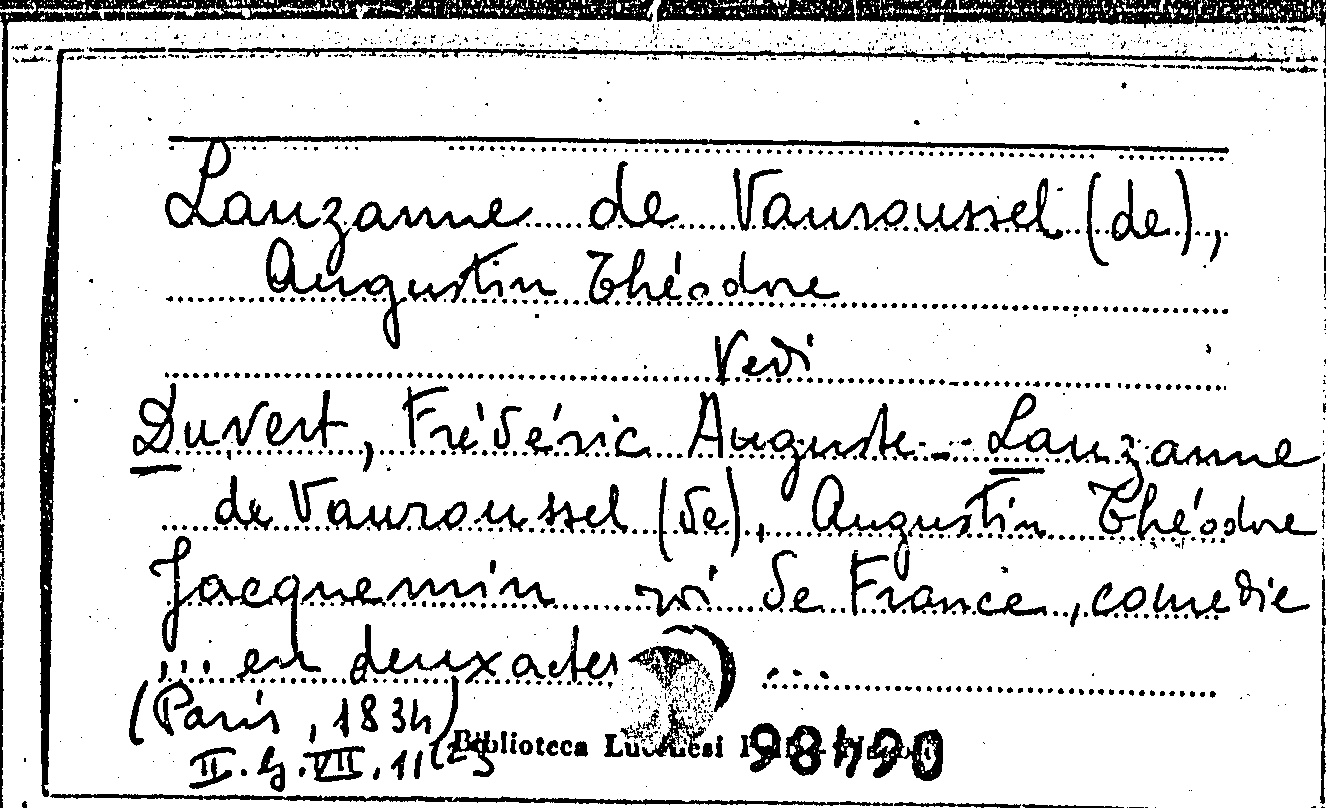 Lauzanne de Vauroussel (de),
Augustin Théodore
Vedi
Duvert, Frédéric Auguste - Lauzanne
de Vauroussel (de), Augustin Théodore
Jacquemin roi de France, comedie
... en deux actes ...
(Paris, 1834)
II. G. VII. 11
Biblioteca 98490